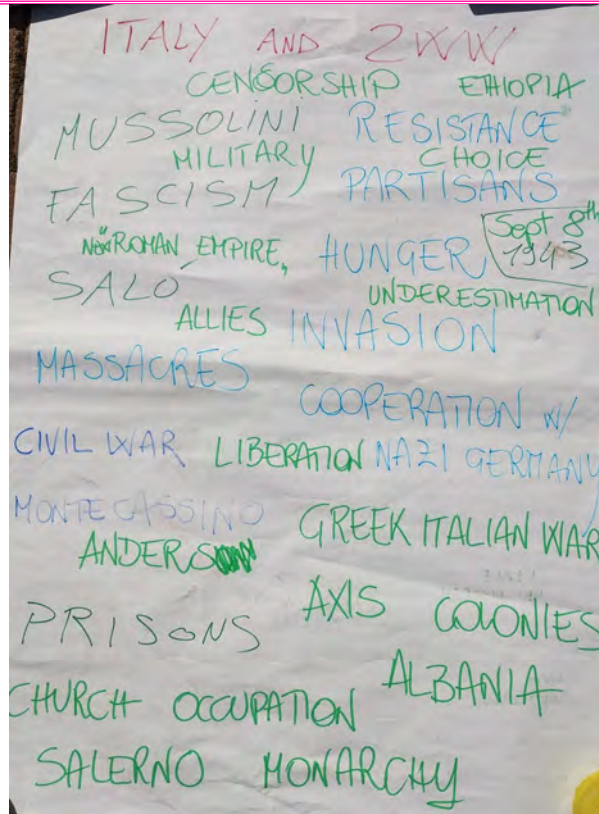 ITALY AND 2WW
CENSORSHIP ETHIOPIA
MUSSOLINI RESISTANCE
MILITARY CHOICE
FASCISM PARTISANS
Sept 8th
"ROMAN EMPIRE" HUNGER 1943
SALÒ UNDERESTIMATION
ALLIES INVASION
MASSACRES
COOPERATION W/
CIVIL WAR LIBERATION NAZI GERMANY
MONTECASSINO GREEK ITALIAN WAR
ANDERS
AXIS COLONIES
PRISONS
ALBANIA
CHURCH OCCUPATION
SALERNO MONARCHY